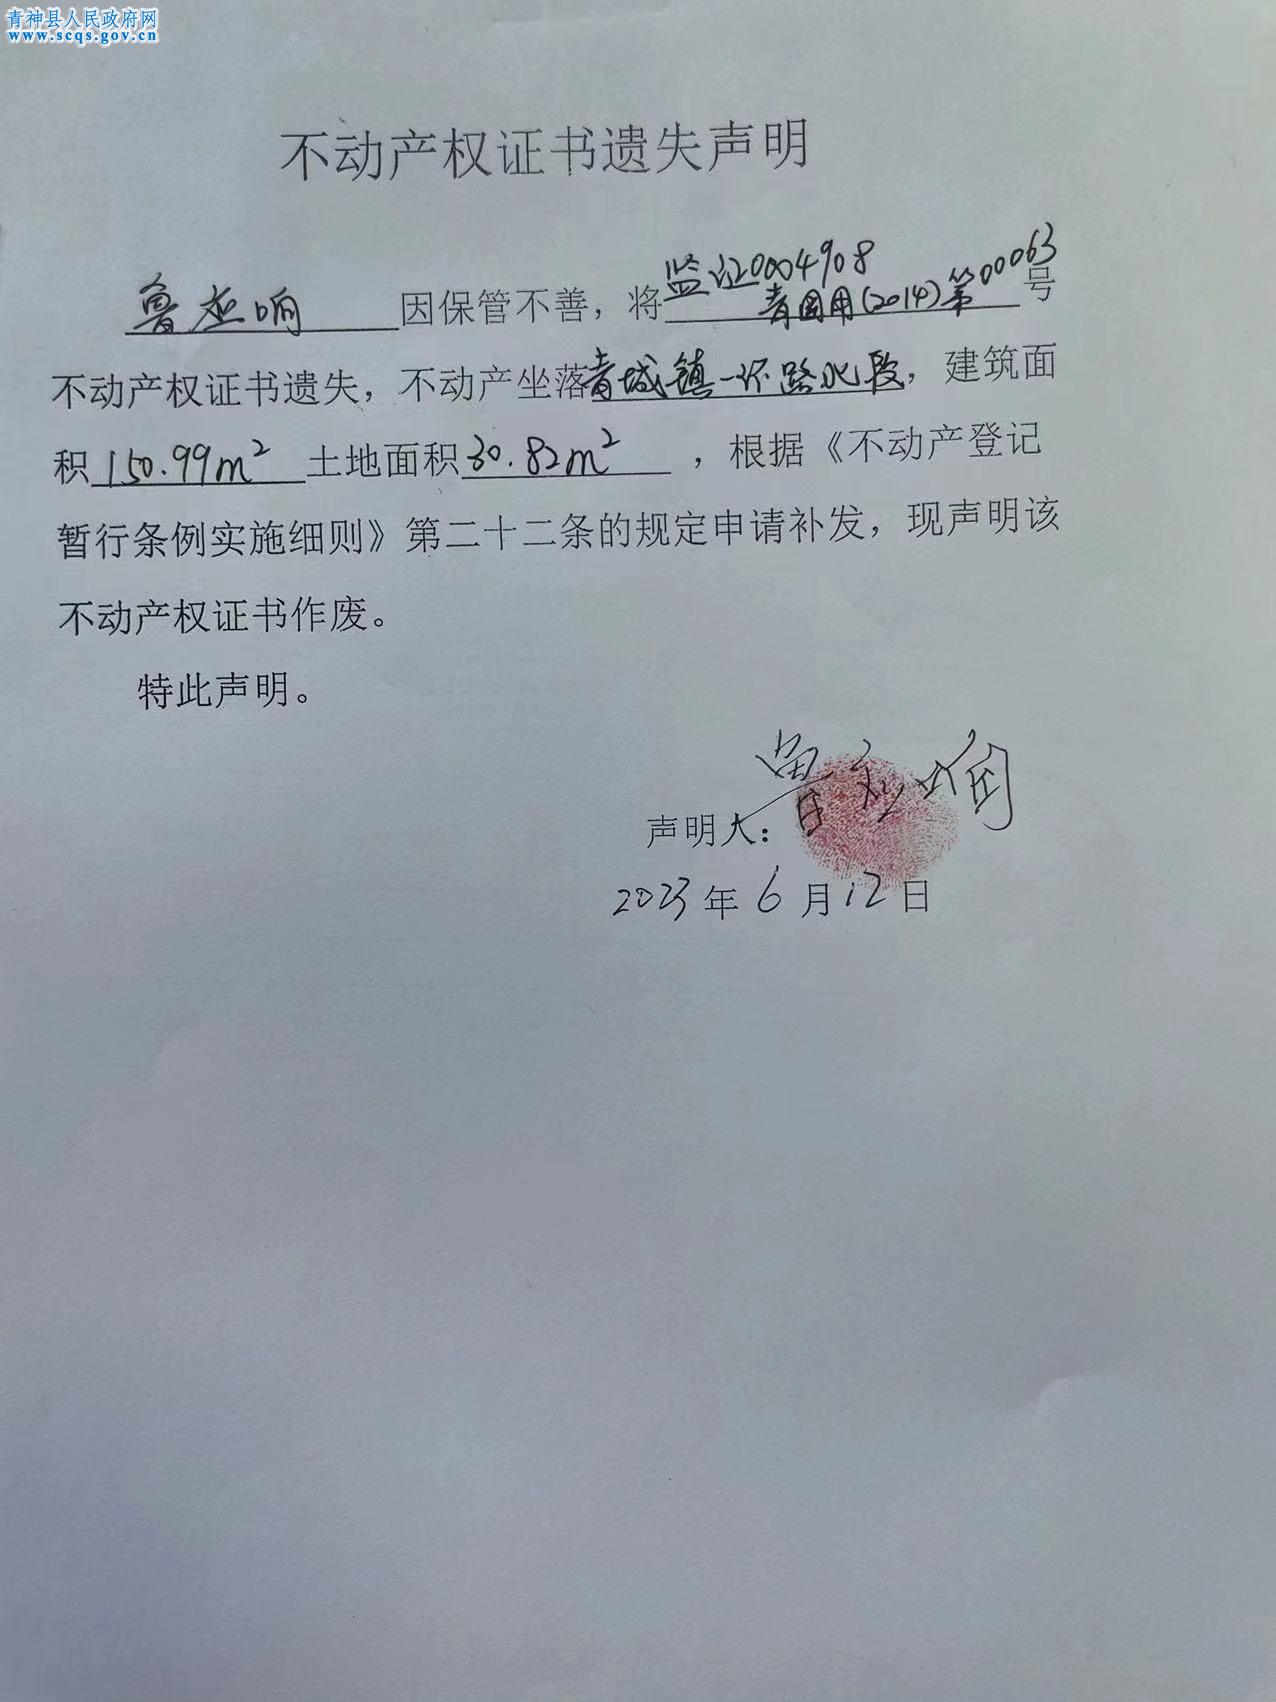 青神县人民政府网
www.scqs.gov.cn
不动产权证书遗失声明
监证0004908
鲁应响因保管不善，将青国用(2014)第00063号
不动产权证书遗失，不动产坐落青城镇一环路北段，建筑面
积150.99m²土地面积30.82m²，根据《不动产登记
暂行条例实施细则》第二十二条的规定申请补发，现声明该
不动产权证书作废。
特此声明。
声明人：鲁应响
2023年6月12日